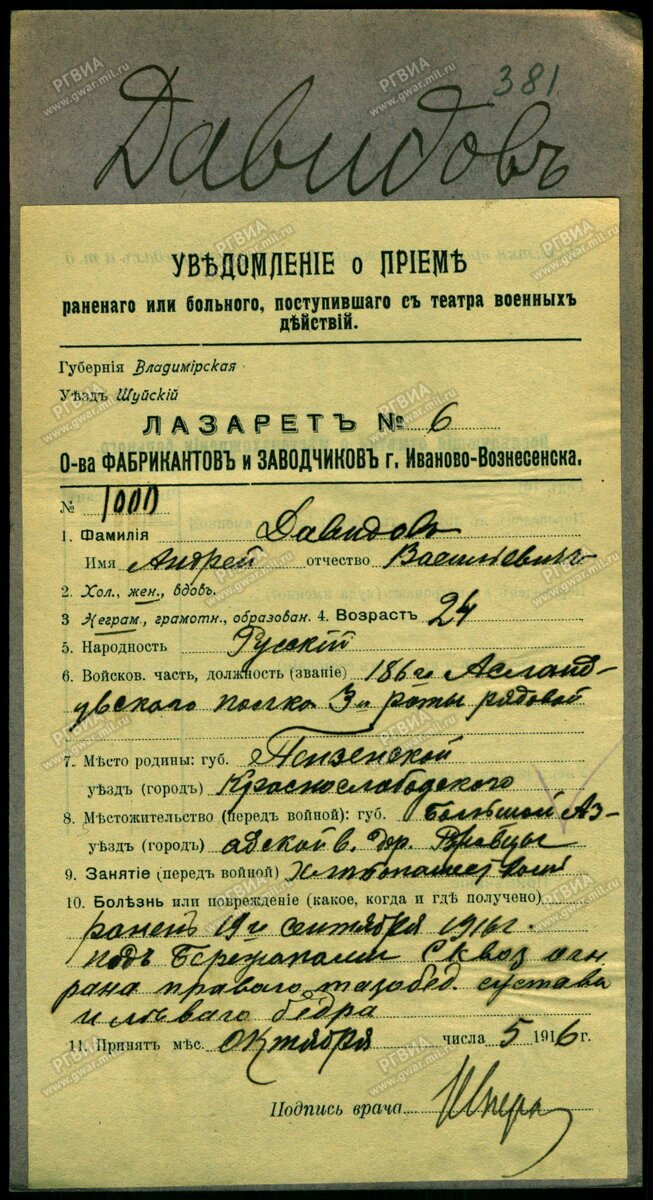 381
Давидовъ
УВѢДОМЛЕНІЕ о ПРІЕМѢ
раненаго или больного, поступившаго съ театра военныхъ
дѣйствій.
Губернія Владимірская
Уѣздъ Шуйскій
ЛАЗАРЕТЪ № 6
О-ва ФАБРИКАНТОВЪ и ЗАВОДЧИКОВЪ г. Иваново-Вознесенска.
№ 1000
1. Фамилія Давидовъ
Имя Андрей отчество Васильевичъ
2. Хол., жен., вдовъ.
3 Неграм., грамотн., образован. 4. Возрастъ 24
5. Народность Русскій
6. Войсков. часть, должность (званіе) 186го Асланд-
узскаго полка 3й роты рядовой
7. Мѣсто родины: губ. Пензенской
уѣздъ (городъ) Краснослободскаго
8. Мѣстожительство (передъ войной): губ. Большой Аз-
уѣздъ (городъ) в. дер.
9. Занятіе (передъ войной)
10. Болѣзнь или поврежденіе (какое, когда и гдѣ получено)
раненъ 19го сентября 1916г.
подъ Бережанами Сквоз огн
рана праваго тазобед. сустава
и лѣваго бедра
11. Принятъ мѣс. октября числа 5 1916 г.
Подпись врача
РГВИА
www.gwar.mil.ru